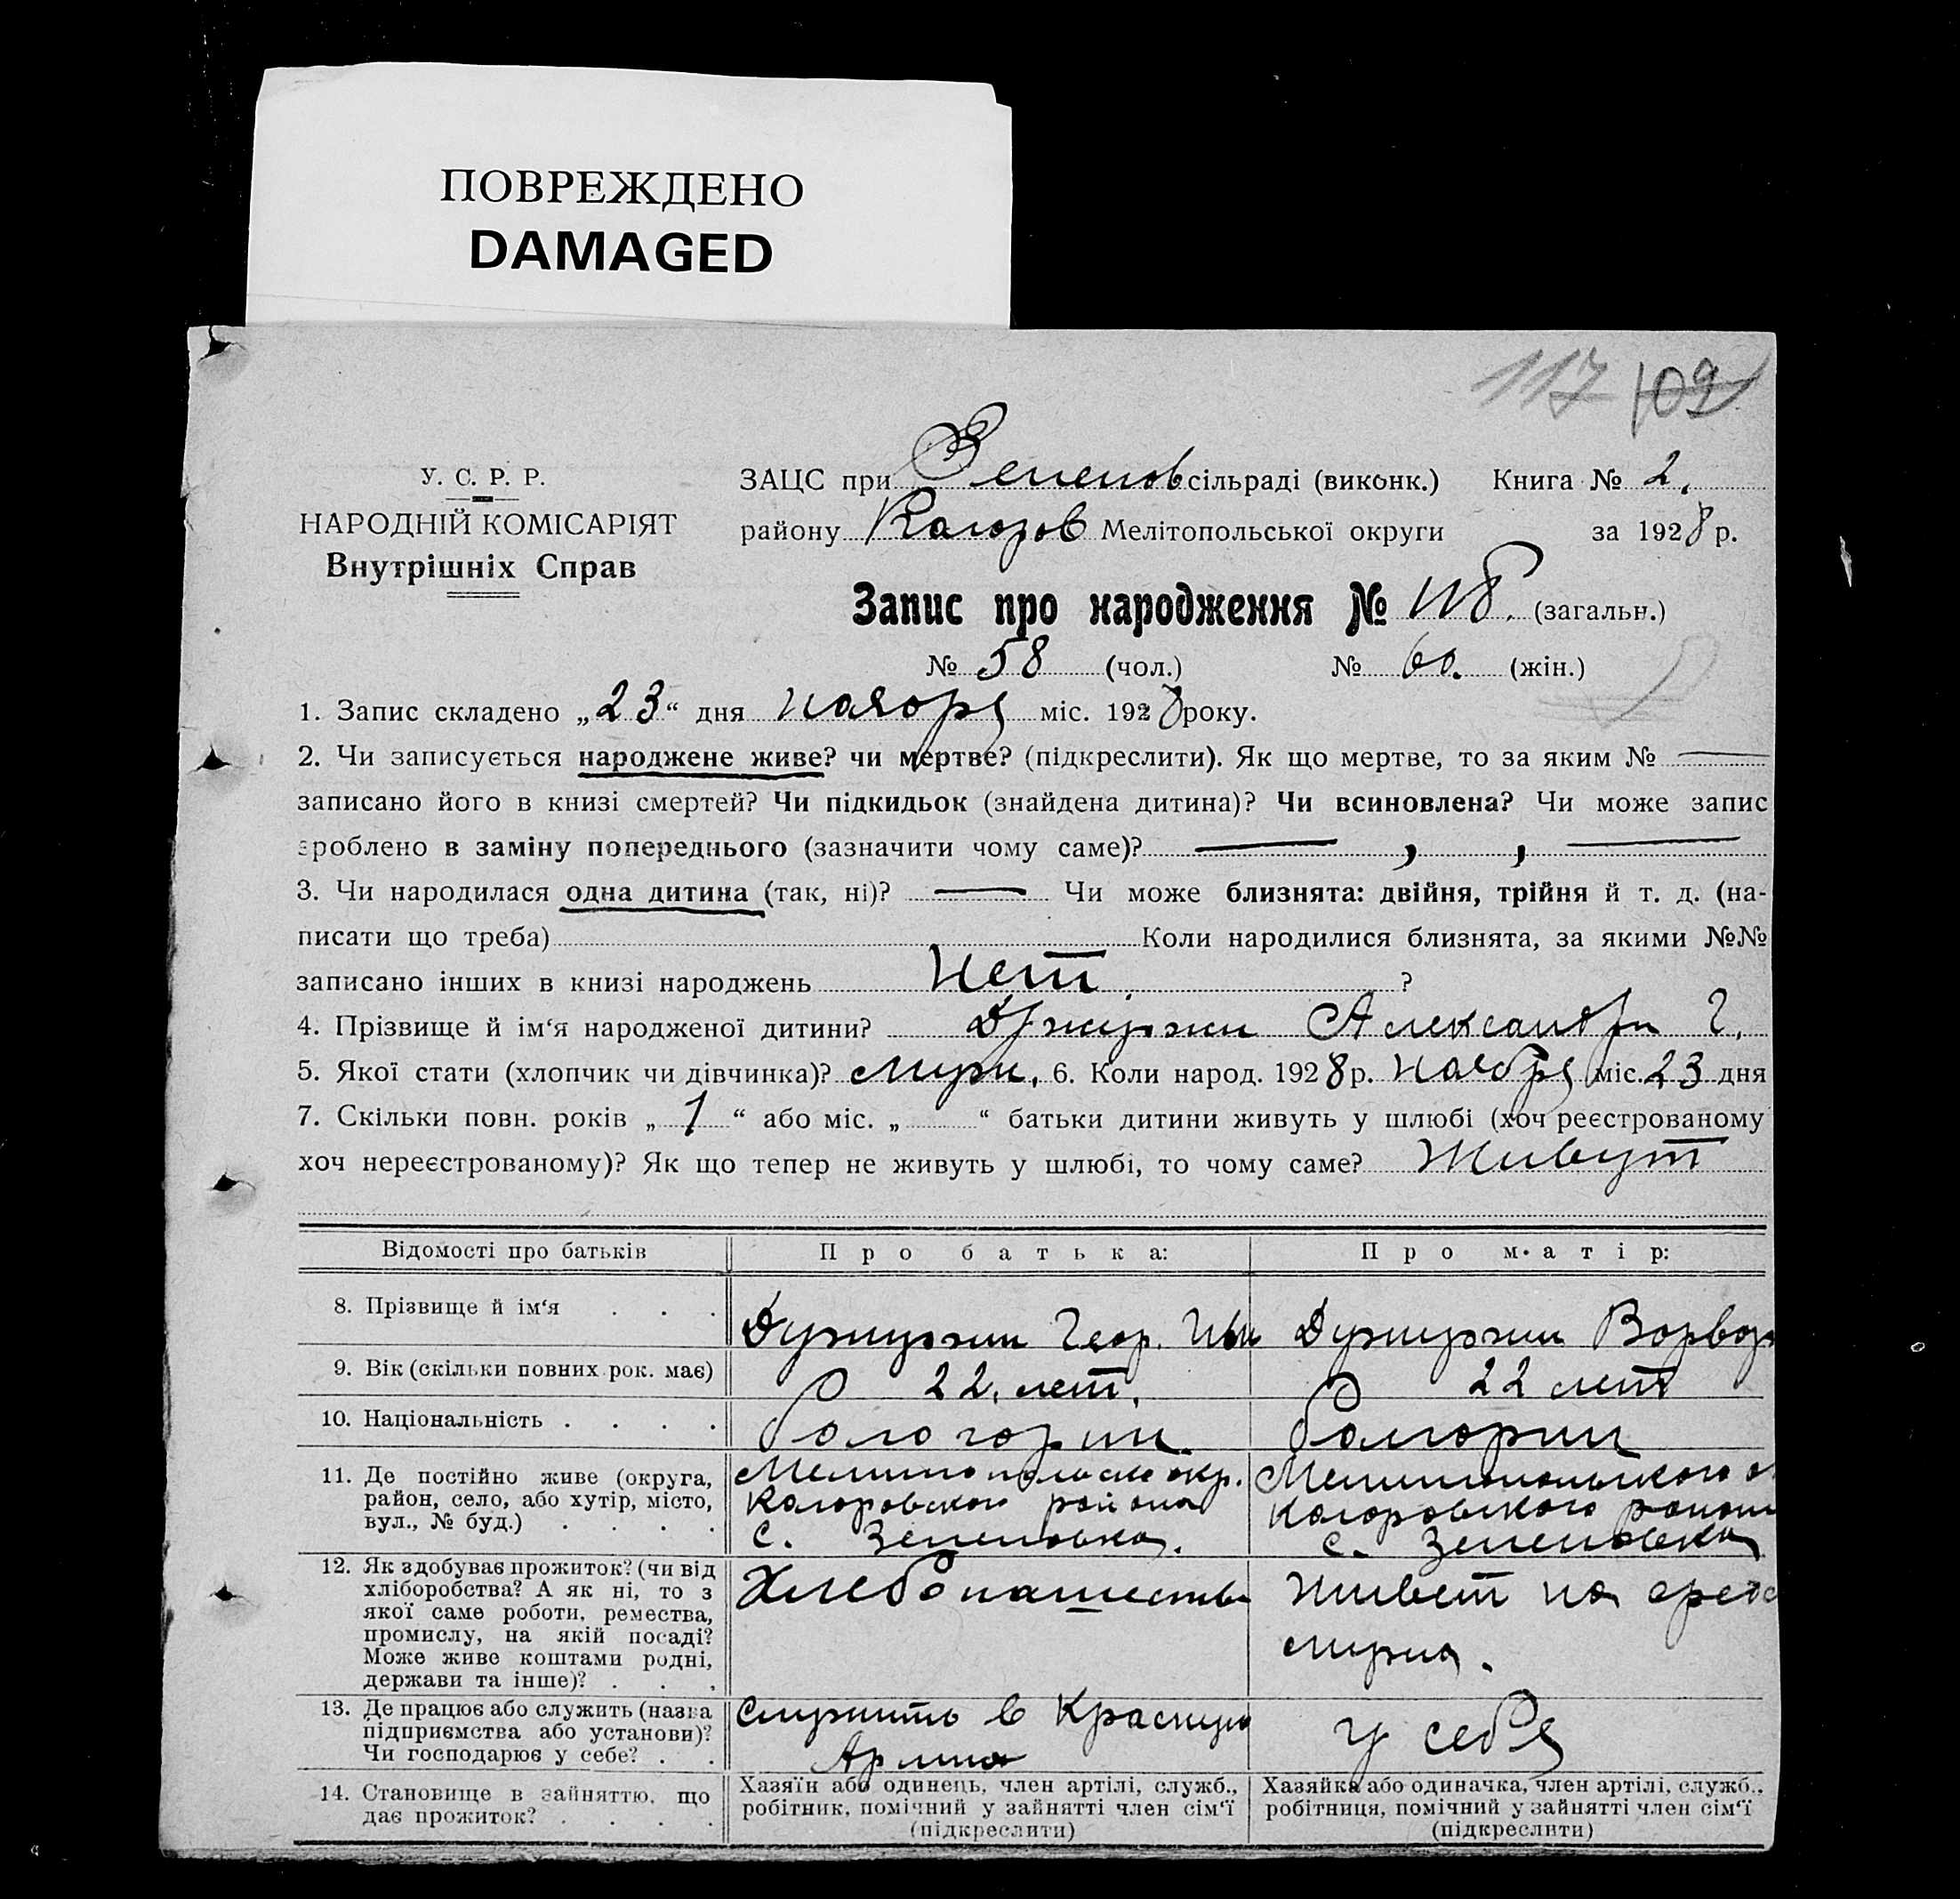 ПОВРЕЖДЕНО
DAMAGED
117 109
У. С. Р. Р.
НАРОДНІЙ КОМІСАРІЯТ
Внутрішніх Справ
ЗАЦС при Зеленов сільраді (виконк.) Книга № 2.
району Мелітопольської округи за 1928 р.
Запис про народження № 118. (загальн.)
№ 58 (чол.) № 60. (жін.)
1. Запис складено „23“ дня ноября міс. 1928 року.
2. Чи записується народжене живе? чи мертве? (підкреслити). Як що мертве, то за яким № —
записано його в книзі смертей? Чи підкидьок (знайдена дитина)? Чи всиновлена? Чи може запис
зроблено в заміну попереднього (зазначити чому саме)? — , , —
3. Чи народилася одна дитина (так, ні)? — Чи може близнята: двійня, трійня й т. д. (на-
писати що треба) Коли народилися близнята, за якими №№
записано інших в книзі народжень Нет. ?
4. Прізвище й ім‘я народженої дитини? Александр Г.
5. Якої стати (хлопчик чи дівчинка)? муж. 6. Коли народ. 1928 р. ноября міс. 23 дня
7. Скільки повн. років „ 1 “ або міс. „ “ батьки дитини живуть у шлюбі (хоч реєстрованому
хоч нереєстрованому)? Як що тепер не живуть у шлюбі, то чому саме? Живут
Відомості про батьків Про батька: Про матір:
8. Прізвище й ім‘я . . . Геор. Ив
9. Вік (скільки повних рок. має) 22. лет. 22 лет
10. Національність . . . . болгорин
11. Де постійно живе (округа,
район, село, або хутір, місто,
вул., № буд.) . . . .
окр.
района
с. Зеленовка.
Мелитопольского о
района
с. Зеленовка
12. Як здобуває прожиток? (чи від
хліборобства? А як ні, то з
якої саме роботи, ремества,
промислу, на якій посаді?
Може живе коштами родні,
держави та інше)? . . .
Хлебопашеств
Живет на средс
мужа.
13. Де працює або служить (назва
підприємства або установи)?
Чи господарює у себе? . .
служить в Красную
Армию
у себя
14. Становище в зайняттю, що
дає прожиток? . . . .
Хазяїн або одинець, член артілі, служб.,
робітник, помічний у зайнятті член сім‘ї
(підкреслити)
Хазяйка або одиначка, член артілі, служб.,
робітниця, помічний у зайнятті член сім‘ї
(підкреслити)